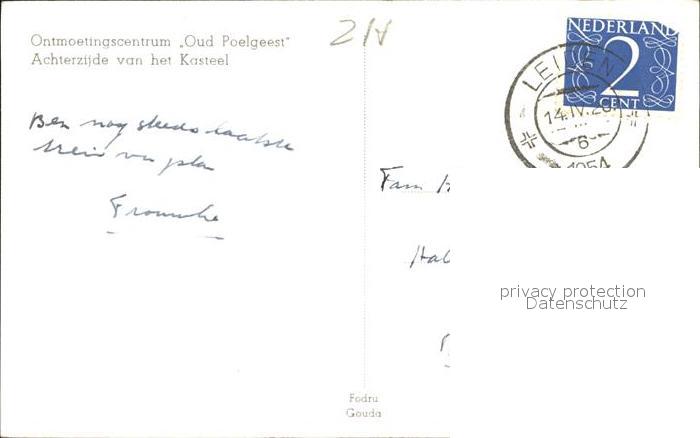 Ontmoetingscentrum „Oud Poelgeest"
Achterzijde van het Kasteel
NEDERLAND
2
CENT
LEIDEN
14.IV.
6
1954
Ben nog steeds laatste
trein van plan
Fam
privacy protection
Datenschutz
Fodru
Gouda